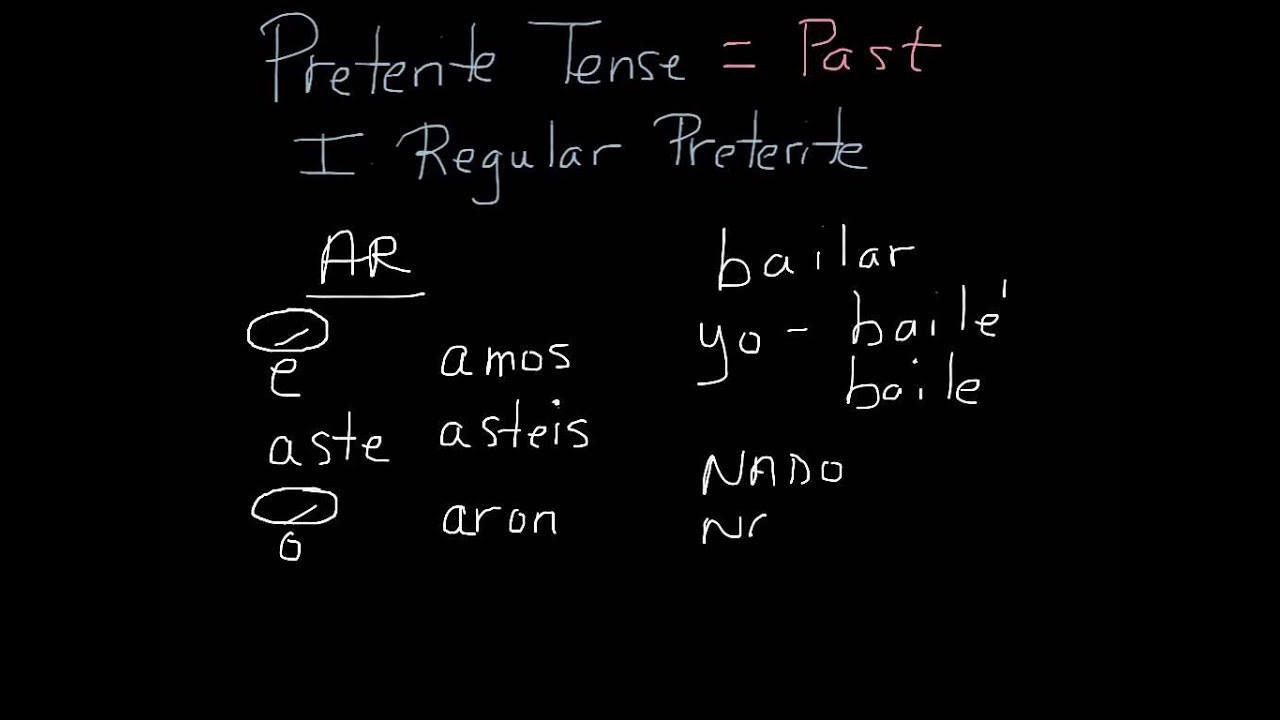 Preterite Tense = Past
I Regular Preterite
AR
é amos
aste asteis
ó aron
bailar
yo - bailé
baile
NADO